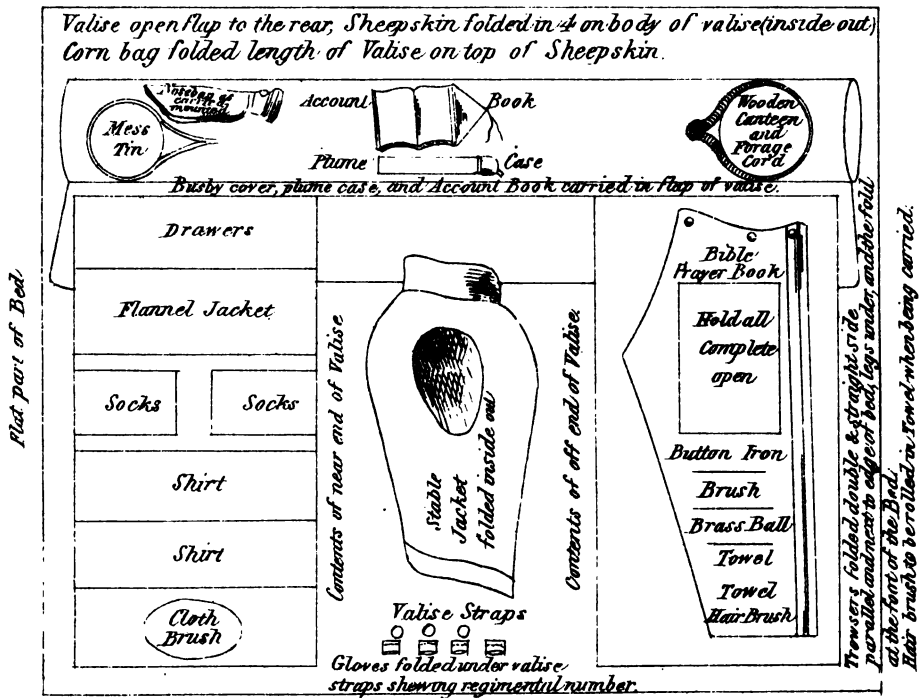 Valise open flap to the rear, Sheepskin folded in 4 on body of valise (inside out)
Corn bag folded length of Valise on top of Sheepskin.
Mess
Tin
Nosebag as
carried
mounted
Account Book
Plume Case
Wooden
Canteen
and
Forage
Cor'd
Busby cover, plume case, and Account Book carried in flap of valise.
Flat part of Bed
Drawers
Flannel Jacket
Socks
Socks
Shirt
Shirt
Cloth
Brush
Contents of near end of Valise
Stable
Jacket
folded inside out
Valise Straps
Gloves folded under valise
straps shewing regimental number.
Contents of off end of Valise.
Bible
Prayer Book
Hold all
Complete
open
Button Iron
Brush
Brass Ball
Towel
Towel
Hair Brush
Trowsers folded double & straight side
parallel and next to edge of bed, legs under, and the fold
at the foot of the Bed.
Hair brush to be rolled in Towel when being carried.